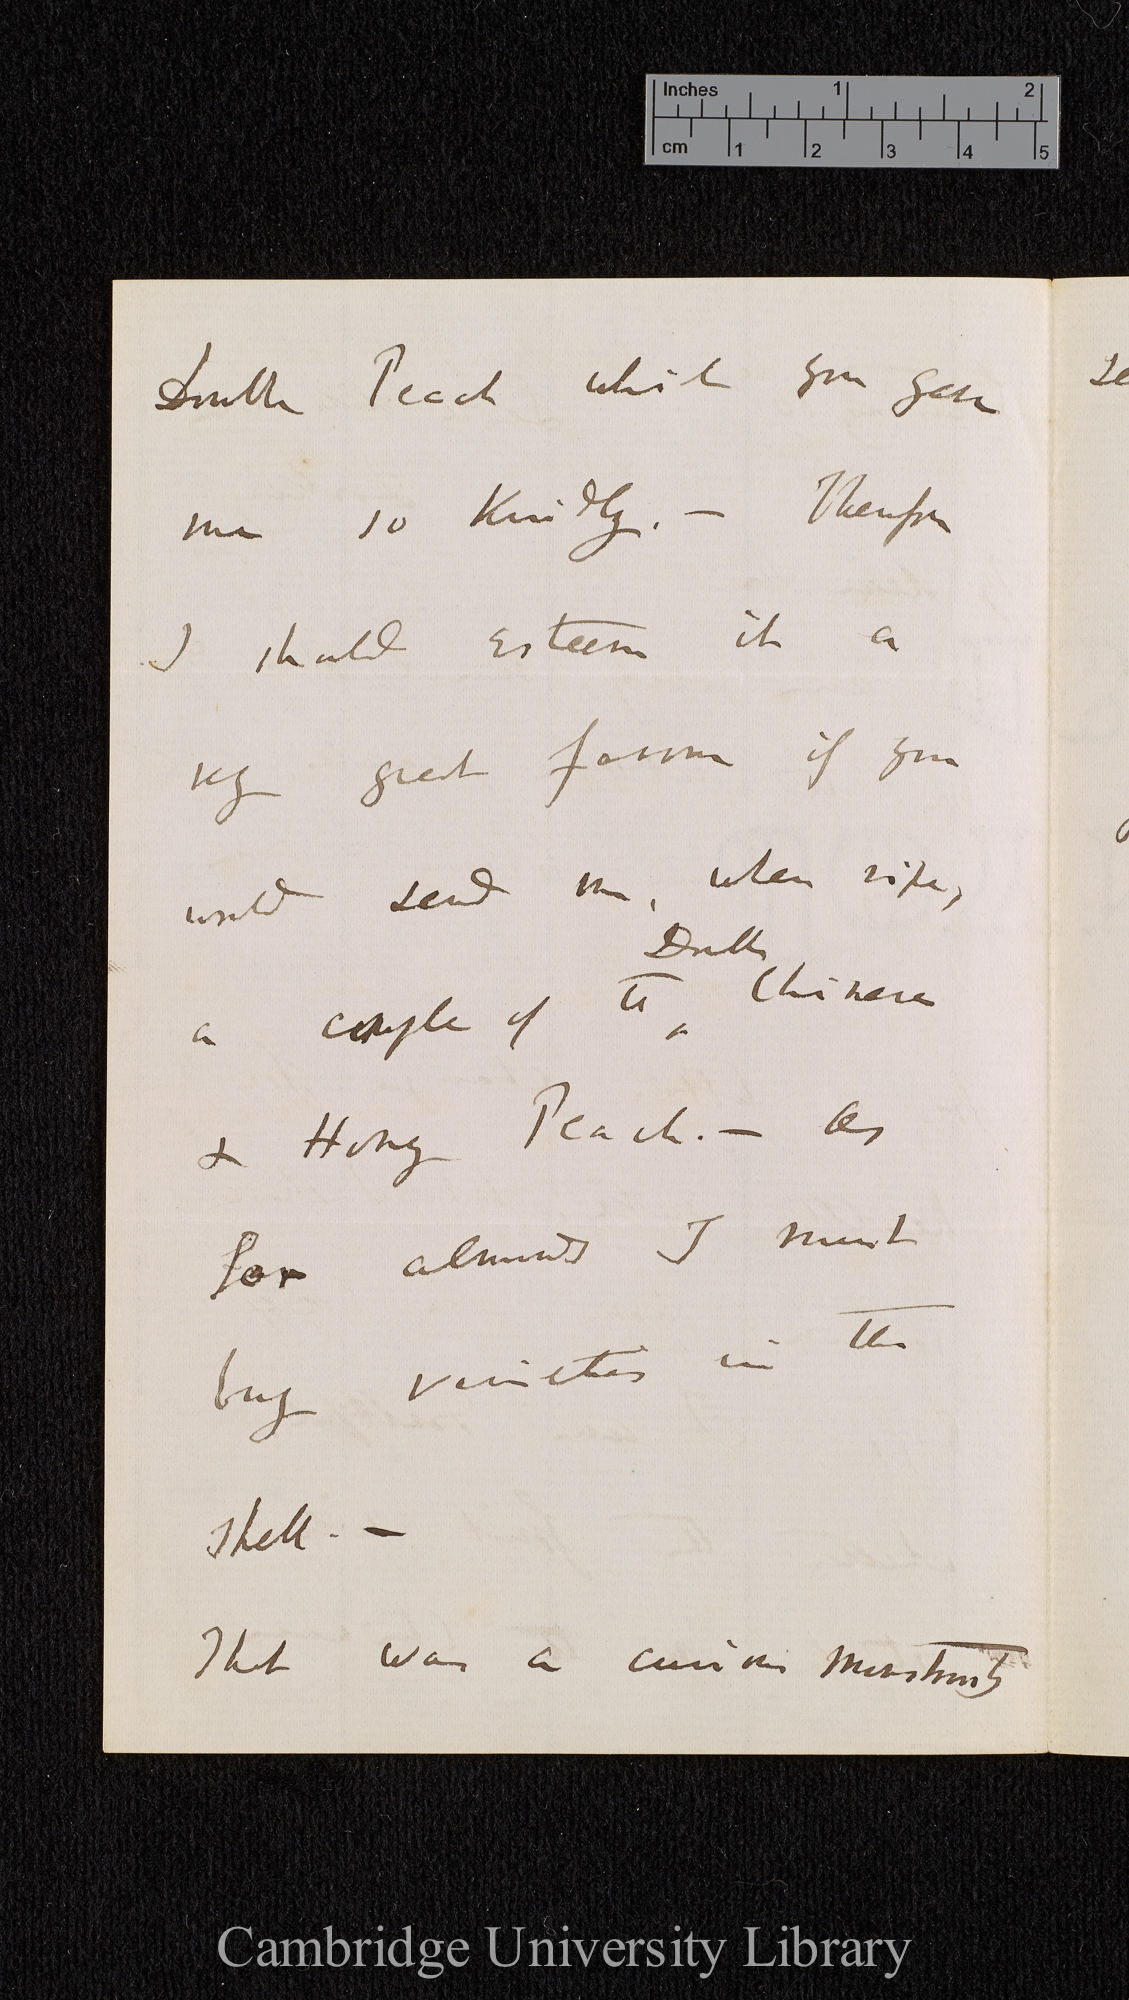 Inches 1 2
cm 1 2 3 4 5
Double Peach which you gave
me so kindly.— Therefore
I should esteem it a
very great favour if you
would send me, when ripe,
Double
a couple of the ^ Chinese
& Honey Peach.— As
for almonds I must
buy varieties in the
shell.—
That was a curious monstrosity
Cambridge University Library